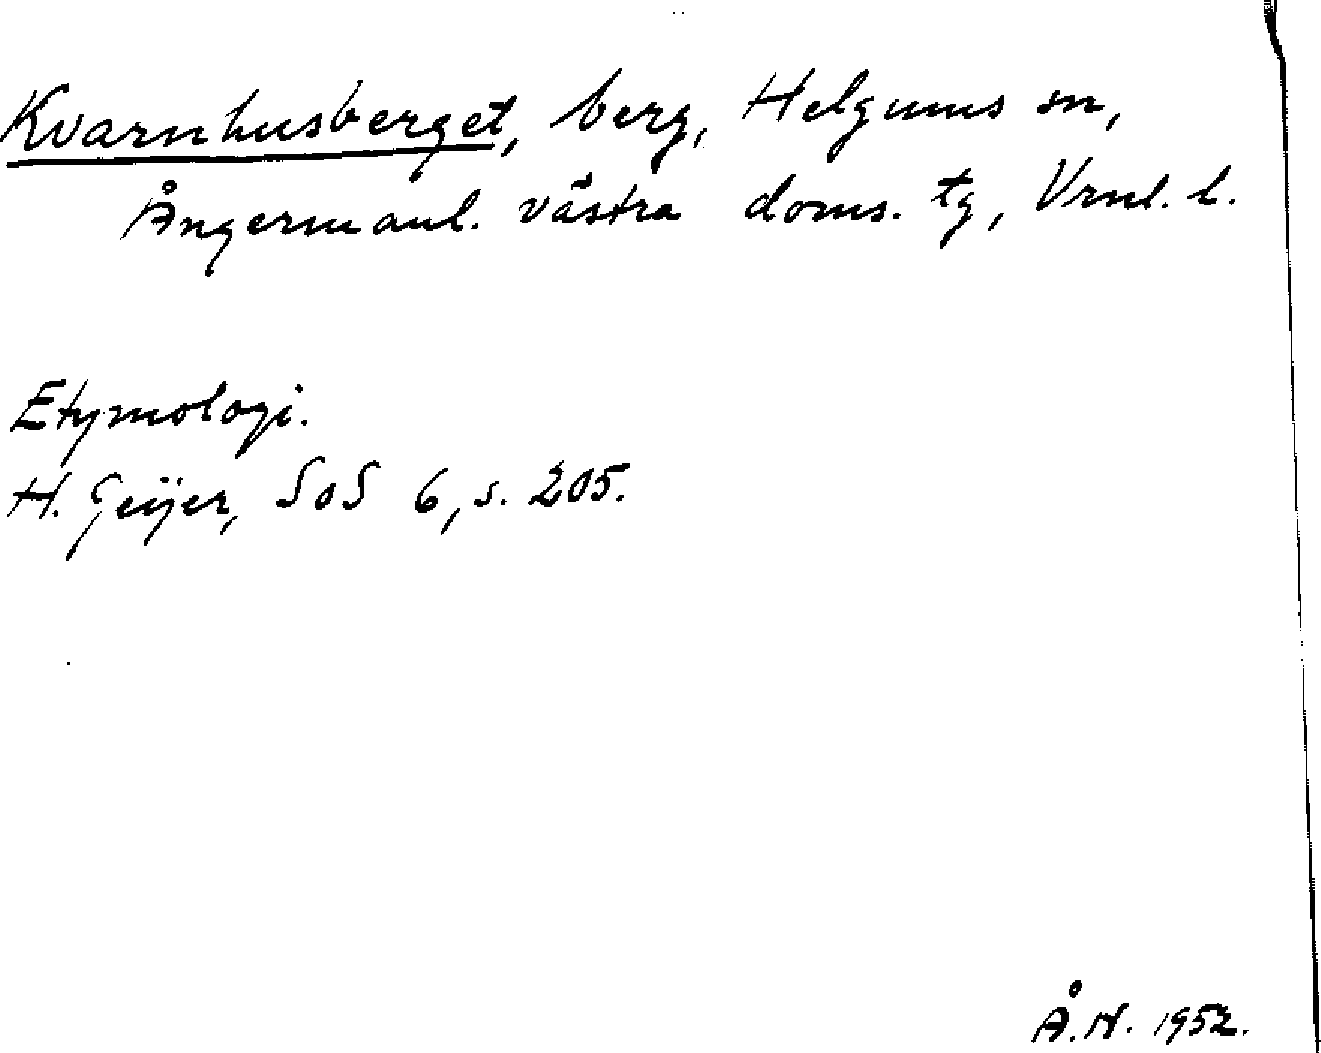 Kvarnhusberget, berg, Helgums sn,
Ångermanl. västra doms. tg, Vrnl. l.
Etymologi.
H. Geijer, SoS 6, s. 205.
Å.N. 1952.